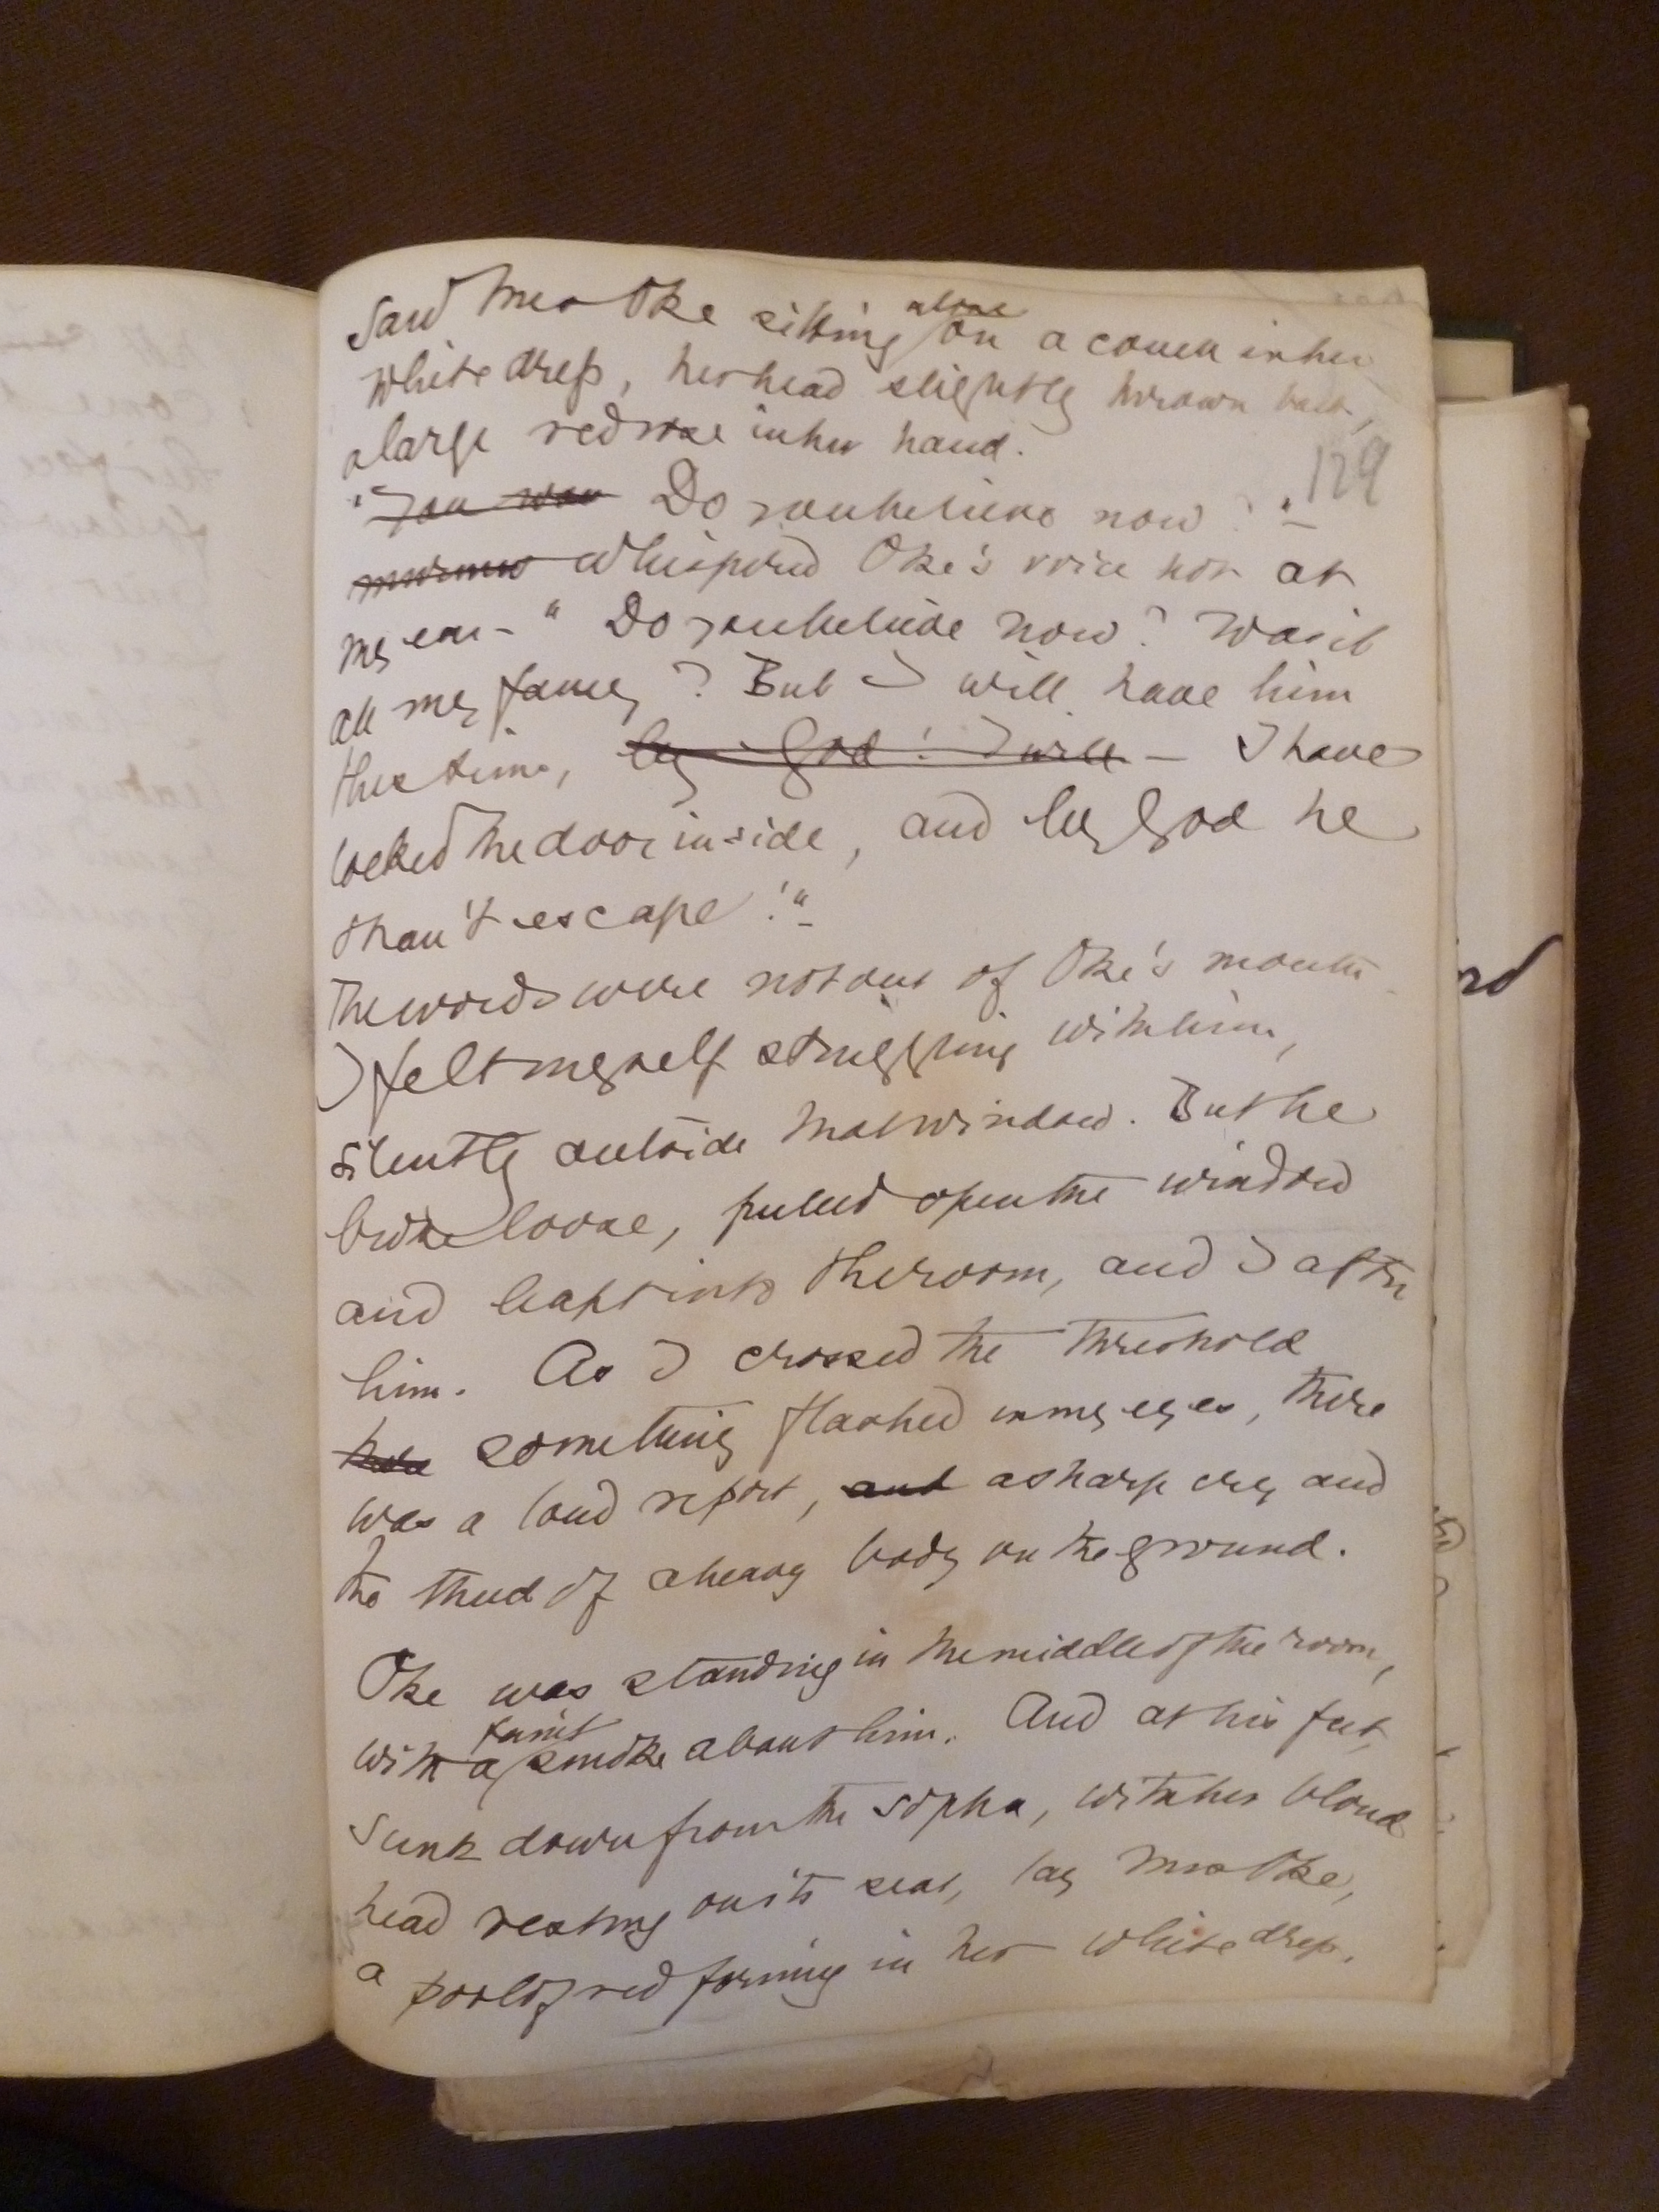 saw Mrs Oke sitting alone on a couch in her
white dress, her head slightly thrown back,
a large red rose in her hand.
129
"You was Do you believe now?"
murmur whispered Oke's voice hot at
my ear - "Do you believe now? Was it
all my fancy? But I will have him
this time, by God! I will - I have
locked the door inside, and by God he
shan't escape!"
The words were not out of Oke's mouth
I felt myself struggling with him,
silently outside that window. But he
broke loose, pulled open the window
and leapt into the room, and I after
him. As I crossed the threshold
something flashed in my eyes, there
was a loud report, and a sharp cry and
the thud of a heavy body on the ground.
Oke was standing in the middle of the room,
with a faint smoke about him. And at his feet,
sunk down from the sopha, with her blond
head resting on its seat, lay Mrs Oke,
a pool of red forming in her white dress.